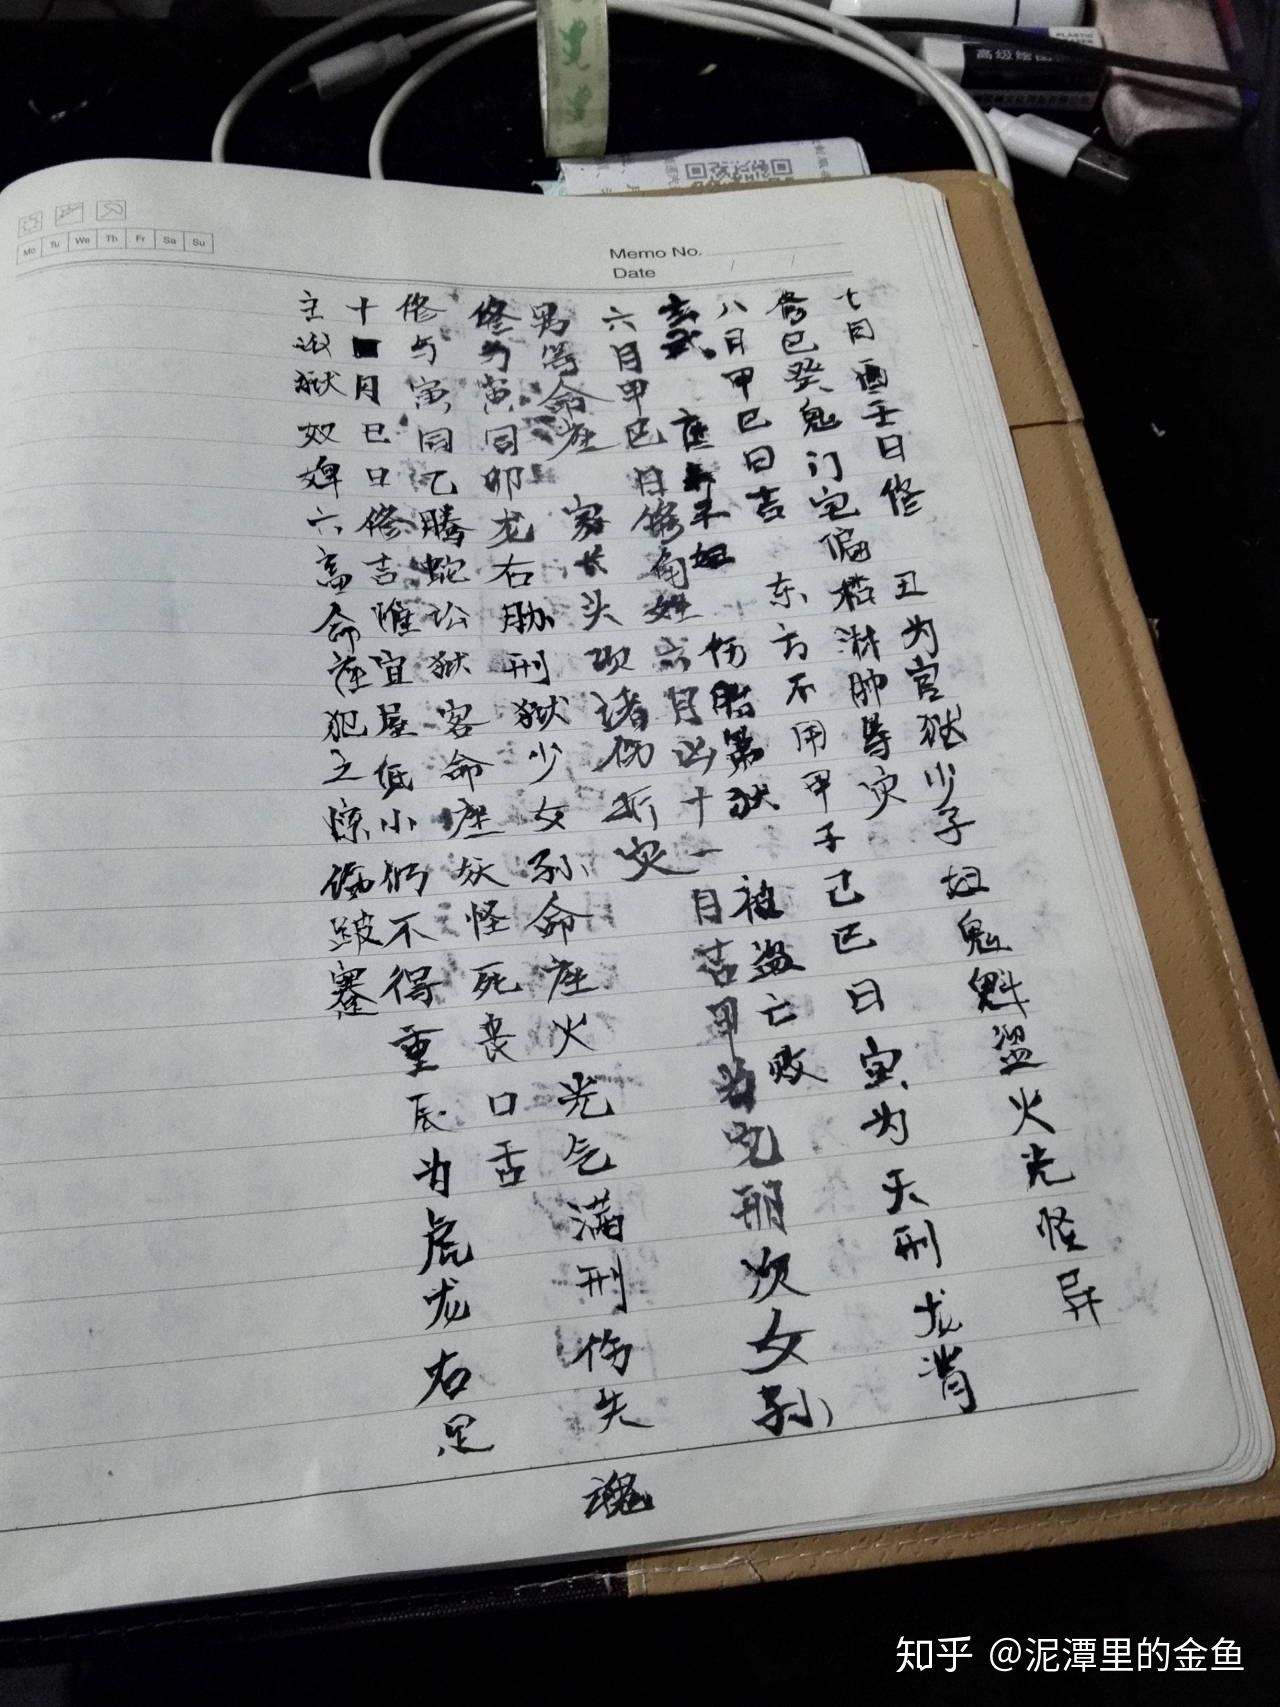 七月酉壬日修 丑为官狱少子妞鬼魁盗火光怪异
修巳癸鬼门宅偏枯淋肿等灾
八月甲巳日吉 东方不用甲子己巳日 寅为天刑龙背
玄武 座 伤胎第狱 被盗亡败
六月甲巳日修角姓六月凶十一月吉 刑次女孙
男等命座 家长头项诸伤折灾
修与寅同卯龙右胁刑狱少女孙命座火光气满刑伤失魂
修与寅同乙腾蛇讼狱客命座妖怪死丧口舌
十月巳日修吉惟宜屋低小仍不得重 辰为虎龙右足
主讼狱奴婢六畜命座犯主惊伤跛蹇
Memo No.
Date
Mo Tu We Th Fr Sa Su
PLASTIC
高级绘图
知乎 @泥潭里的金鱼